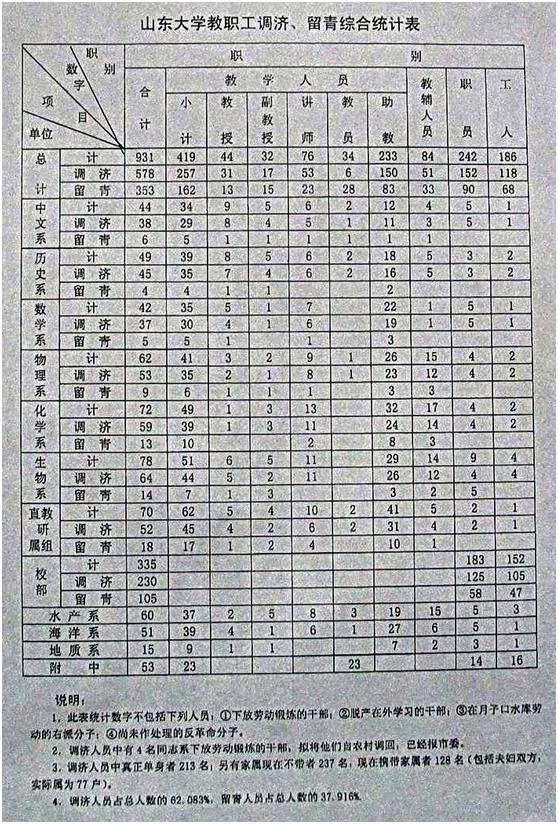 山东大学教职工调济、留青综合统计表
职别 数字 项目 单位 合计 职别
教学人员 教辅人员 职员 工人
小计 教授 副教授 讲师 教员 助教
总计 计 931 419 44 32 76 34 233 84 242 186
调济 578 257 31 17 53 6 150 51 152 118
留青 353 162 13 15 23 28 83 33 90 68
中文系 计 44 34 9 5 6 2 12 4 5 1
调济 38 29 8 4 5 1 11 3 5 1
留青 6 5 1 1 1 1 1 1
历史系 计 49 39 8 5 6 2 18 5 3 2
调济 45 35 7 4 6 2 16 5 3 2
留青 4 4 1 1 2
数学系 计 42 35 5 1 7 22 1 5 1
调济 37 30 4 1 6 19 1 5 1
留青 5 5 1 1 3
物理系 计 62 41 3 2 9 1 26 15 4 2
调济 53 35 2 1 8 1 23 12 4 2
留青 9 6 1 1 1 3 3
化学系 计 72 49 1 3 13 32 17 4 2
调济 59 39 1 3 11 24 14 4 2
留青 13 10 2 8 3
生物系 计 78 51 6 5 11 29 14 9 4
调济 64 44 5 2 11 26 12 4 4
留青 14 7 1 3 3 2 5
直属教研组 计 70 62 5 4 10 2 41 5 2 1
调济 52 45 4 2 6 2 31 4 2 1
留青 18 17 1 2 4 10 1
校部 计 335 183 152
调济 230 125 105
留青 105 58 47
水产系 60 37 2 5 8 3 19 15 5 3
海洋系 51 39 4 1 6 1 27 6 5 1
地质系 15 9 1 1 7 2 3 1
附中 53 23 23 14 16
说明:
1. 此表统计数字不包括下列人员:①下放劳动锻炼的干部;②脱产在外学习的干部;③在月子口水库劳
动的右派分子;④尚未作处理的反革命分子。
2. 调济人员中有4名同志系下放劳动锻炼的干部,拟将他们自农村调回,已经报市委。
3. 调济人员中真正单身者213名;另有家属现在不带者237名,现在携带家属者128名(包括夫妇双方,
实际属为77户)。
4. 调济人员占总人数的62.083%,留青人员占总人数的37.916%.